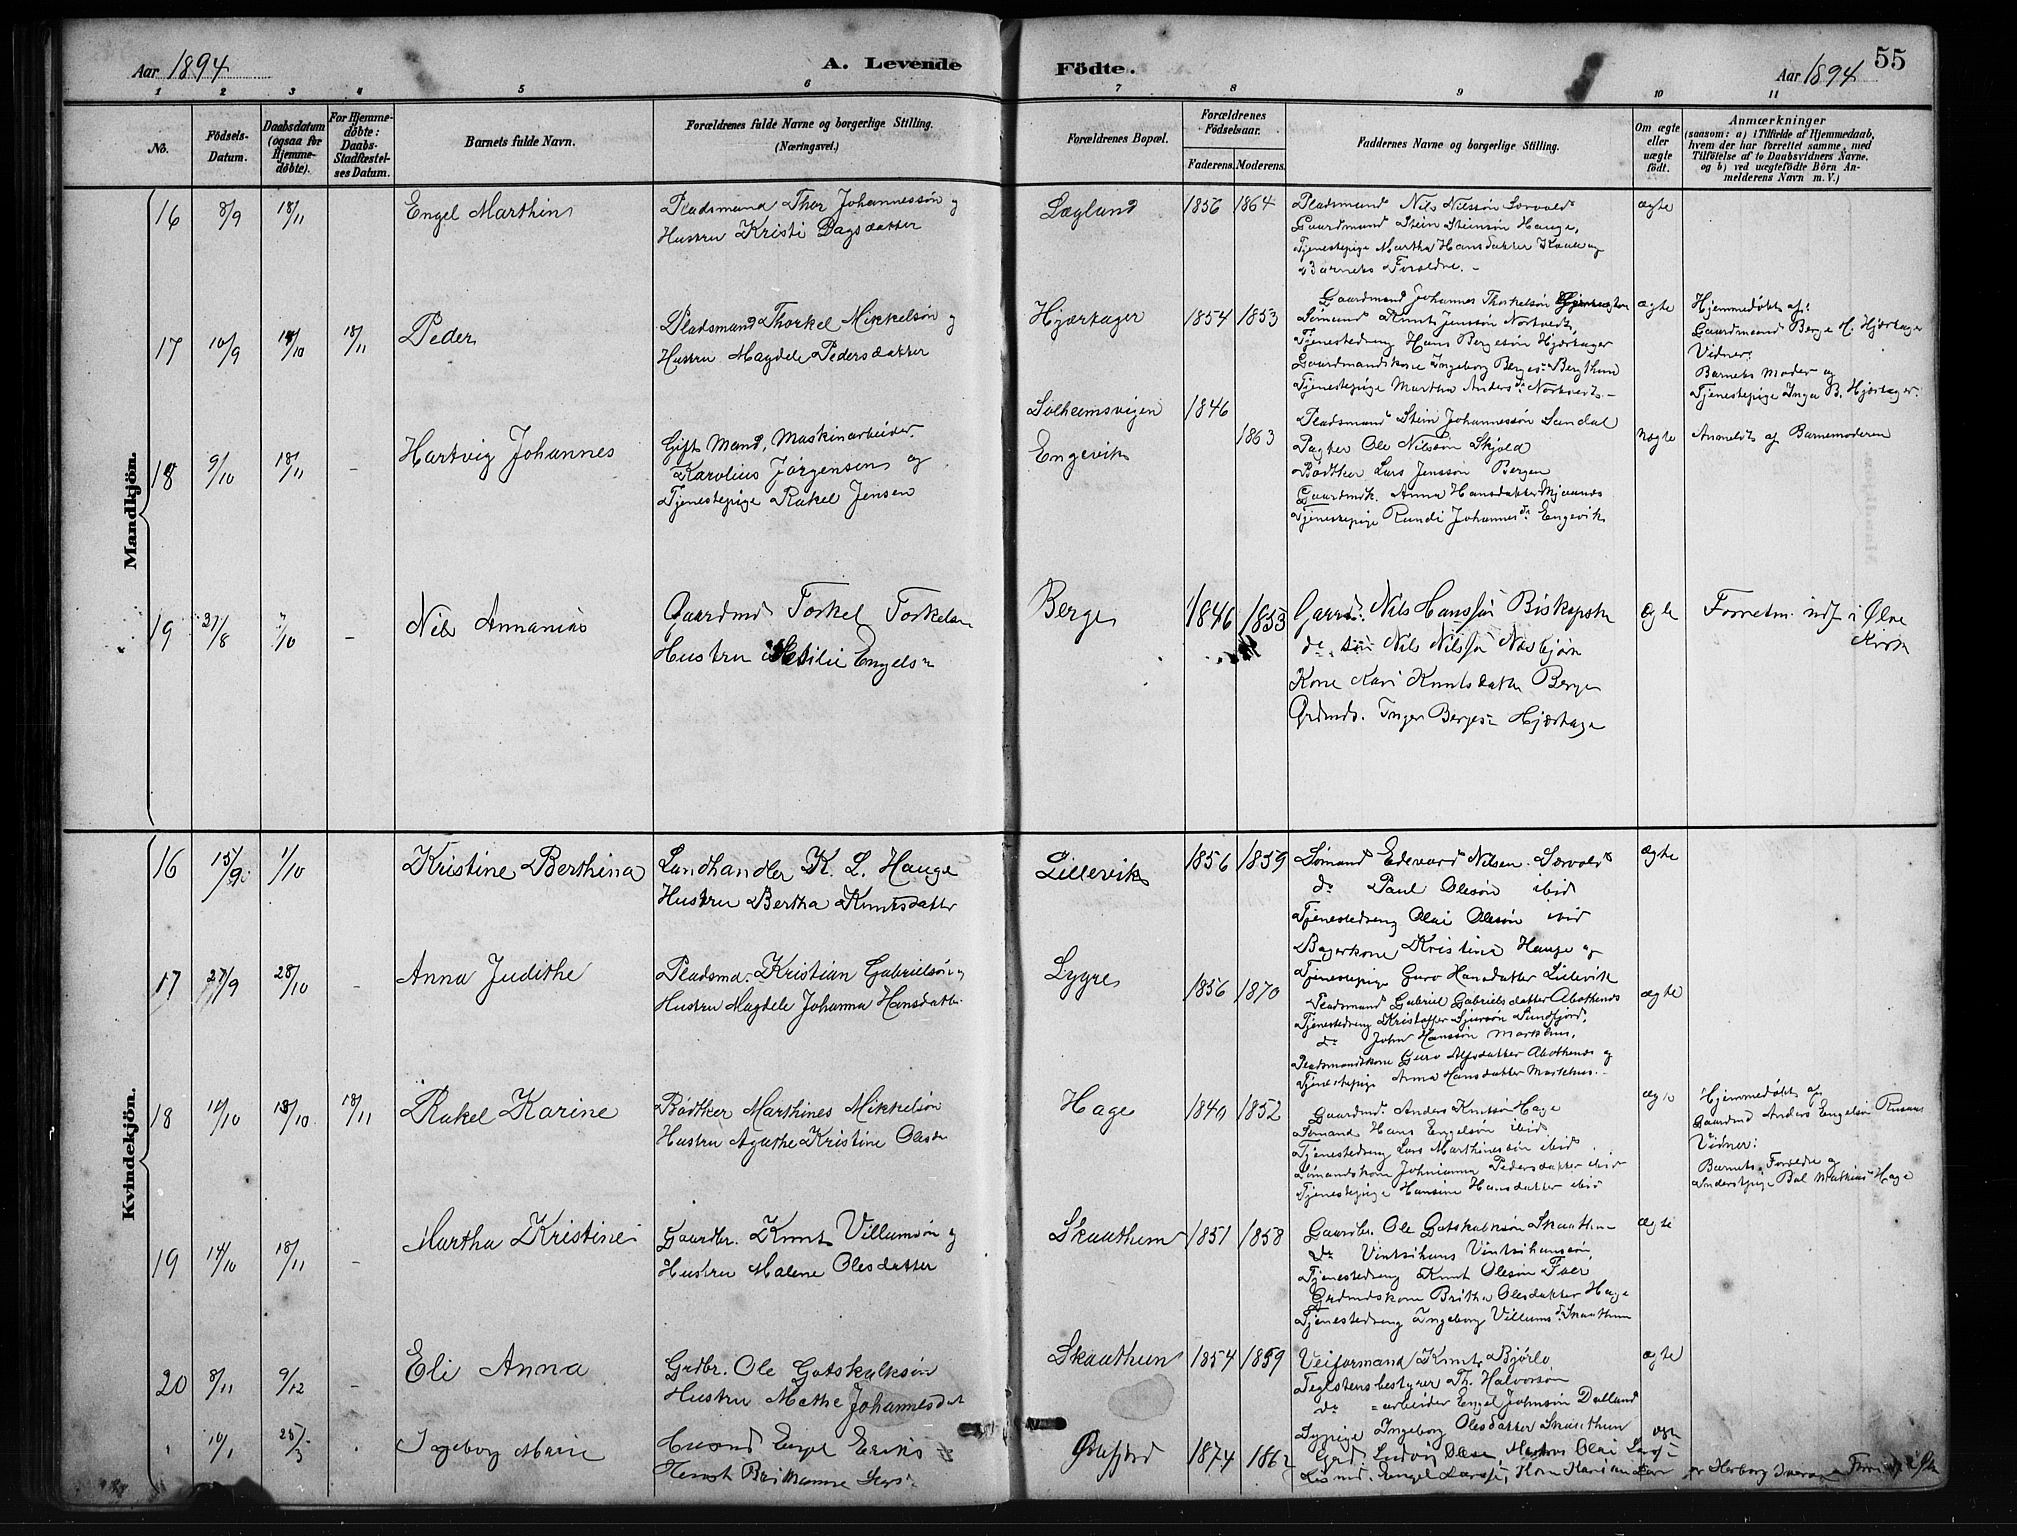 Aar 1894
A. Levende
Födte.
Aar 1894
55
1 2 3 4 5 6 7 8 9 10 11
No.
Födsels-Datum.
Daabsdatum (ogsaa for Hjemme-døbte).
For Hjemme-døbte: Daabs-Stadfæstel-ses Datum.
Barnets fulde Navn.
Forældrenes fulde Navne og borgerlige Stilling. (Næringsvei.)
Forældrenes Bopæl.
Forældrenes Födselsaar.
Faderens. Moderens.
Faddernes Navne og borgerlige Stilling.
Om ægte eller uægte født.
Anmærkninger
(saasom: a) i Tilfælde af Hjemmedaab,
hvem der har forrettet samme, med
Tilføielse af to Daabsvidners Navne.
og b) ved uægtefødte Börn An-
melderens Navn m. V.)
Mandkjön.
16 8/9 18/11 Engel Marthin
Pladsmand Thor Johannessön og
Hustru Kristi Dagsdatter
Lægland 1856 1864
Pladsmand Nils Nilssön Særvold
Gaardmand Stein Steinsön Hauge,
Tjenestepige Martha Hansdatter
Barnets Forældre.
ægte
17 10/9 14/10 18/11 Peder
Pladsmand Thorkel Mikkelsön og
Hustru Magdele Pedersdatter
Hjærtager 1854 1853
Gaardmand Johannes Thorkelsön
Sømand Knut Jenssön Nortvedt,
Tjenestedreng Hans Bergesön Hjærtager
Gaardmandskone Ingeborg Berges
Tjenestepige Martha Anders dr Nortvedt
ægte
Hjemmedøbt af:
Gaardmand Berge H. Hjærtager
Vidner:
Barnets Moder og
Tjenestepige Inga B. Hjærtager
18 9/10 18/11 - Hartvig Johannes
Gift Mand, Maskinarbeider
Karolius Jörgensen og
Tjenestepige Rakel Jensen
Solheimsvigen 1846
Engevik 1863
Pladsmand Stein Johannessön Sandal
Pagter Ole Nilssön Skjold
Bödtker Lars Jenssön Bergen
Gaardmk. Anna Hansdatter
Tjenestepige Rundi Johannes dr Engevik
uægte
Anmeldt af Barnemoderen
19 31/8 7/10 - Nils Annanias
Gaardmd Torkel Torkelsen
Hustru Engelsdr
Berge 1846 1853
Gaard. Nils Hanssön
do Nils Nilssön Næsbjörn
Kone Kari Knutsdatter Berge
Grdmds. Inger Berges Hjærtage
ægte
Forretn. udf i Ølve
Kirk
Kvindekjön.
16 15/9 1/10 Kristine Berthina
Landhandler K. L. Hauge
Hustru Bertha Knutsdatter
Lillevik 1856 1859
Sømand Edevard Nilsen Særvold
do Paul Olesön ibid
Tjenestedreng Olai Olesön ibid
Bagerkone Kristine Hauge og
Tjenestepige Guro Hansdatter Lillevik
ægte
17 27/9 28/10 - Anna Judithe
Pladsmd. Kristian Gabrielsön og
Hustru Magdele Johanna Hansdatter
Lygre 1856 1870
Pladsmand Gabriel Gabrielsdatter
Tjenestedreng Kristoffer Sjursön Sundfjord,
do John Hanssön Markhus,
Pladsmandskone Guro Alfsdatter og
Tjenestepige Anna Hansdatter Markhus.
ægte
18 14/10 18/10 18/11 Rakel Karine
Bödtker Marthines Mikkelsön
Hustru Agathe Kristine Olesdr
Hage 1840 1852
Gaardmd. Anders Knutsön Hage
Sømand Hans Engelsön ibid
Tjenestedreng Lars Marthinessön ibid
Sömandskone Johnianna Pedersdatter ibid
Tjenestepige Hansine Hansdatter ibid
ægte
Hjemmedøbt af
Gaardmd Anders Engelsön
Vidner:
Barnets Forældre og
Mathias Hage
19 14/10 18/11 - Martha Kristine
Gaardbr. Knut Villumsön og
Hustru Malene Olesdatter
Skaathun 1851 1858
Gaardbr. Ole Gotskalksön Skaathun
do Vintsihans Vintsihanssön,
Tjenestedreng Knut Olesön
Grdmdskone Britha Olesdatter Hage
Tjenestedreng Ingeborg Villums dr Skaathun
ægte
20 8/11 9/12 - Eli Anna
Grdbr. Ole Gotskalksön
Hustru Methe Johannesdat
Skaathun 1854 1859
Veiformand Knut Bjørlo
Teglstensbestyrer Th. Halvorsön
do =arbeider Engel Johnsön Dalland
Tj.pige Ingeborg Olesdatter Skaathun
ægte
10/1 25/3 Ingeborg Marie
Husmd Engel Eriks
Hust Brithanne
Ølvefjord 1874
Grd. Ludvig
ægt